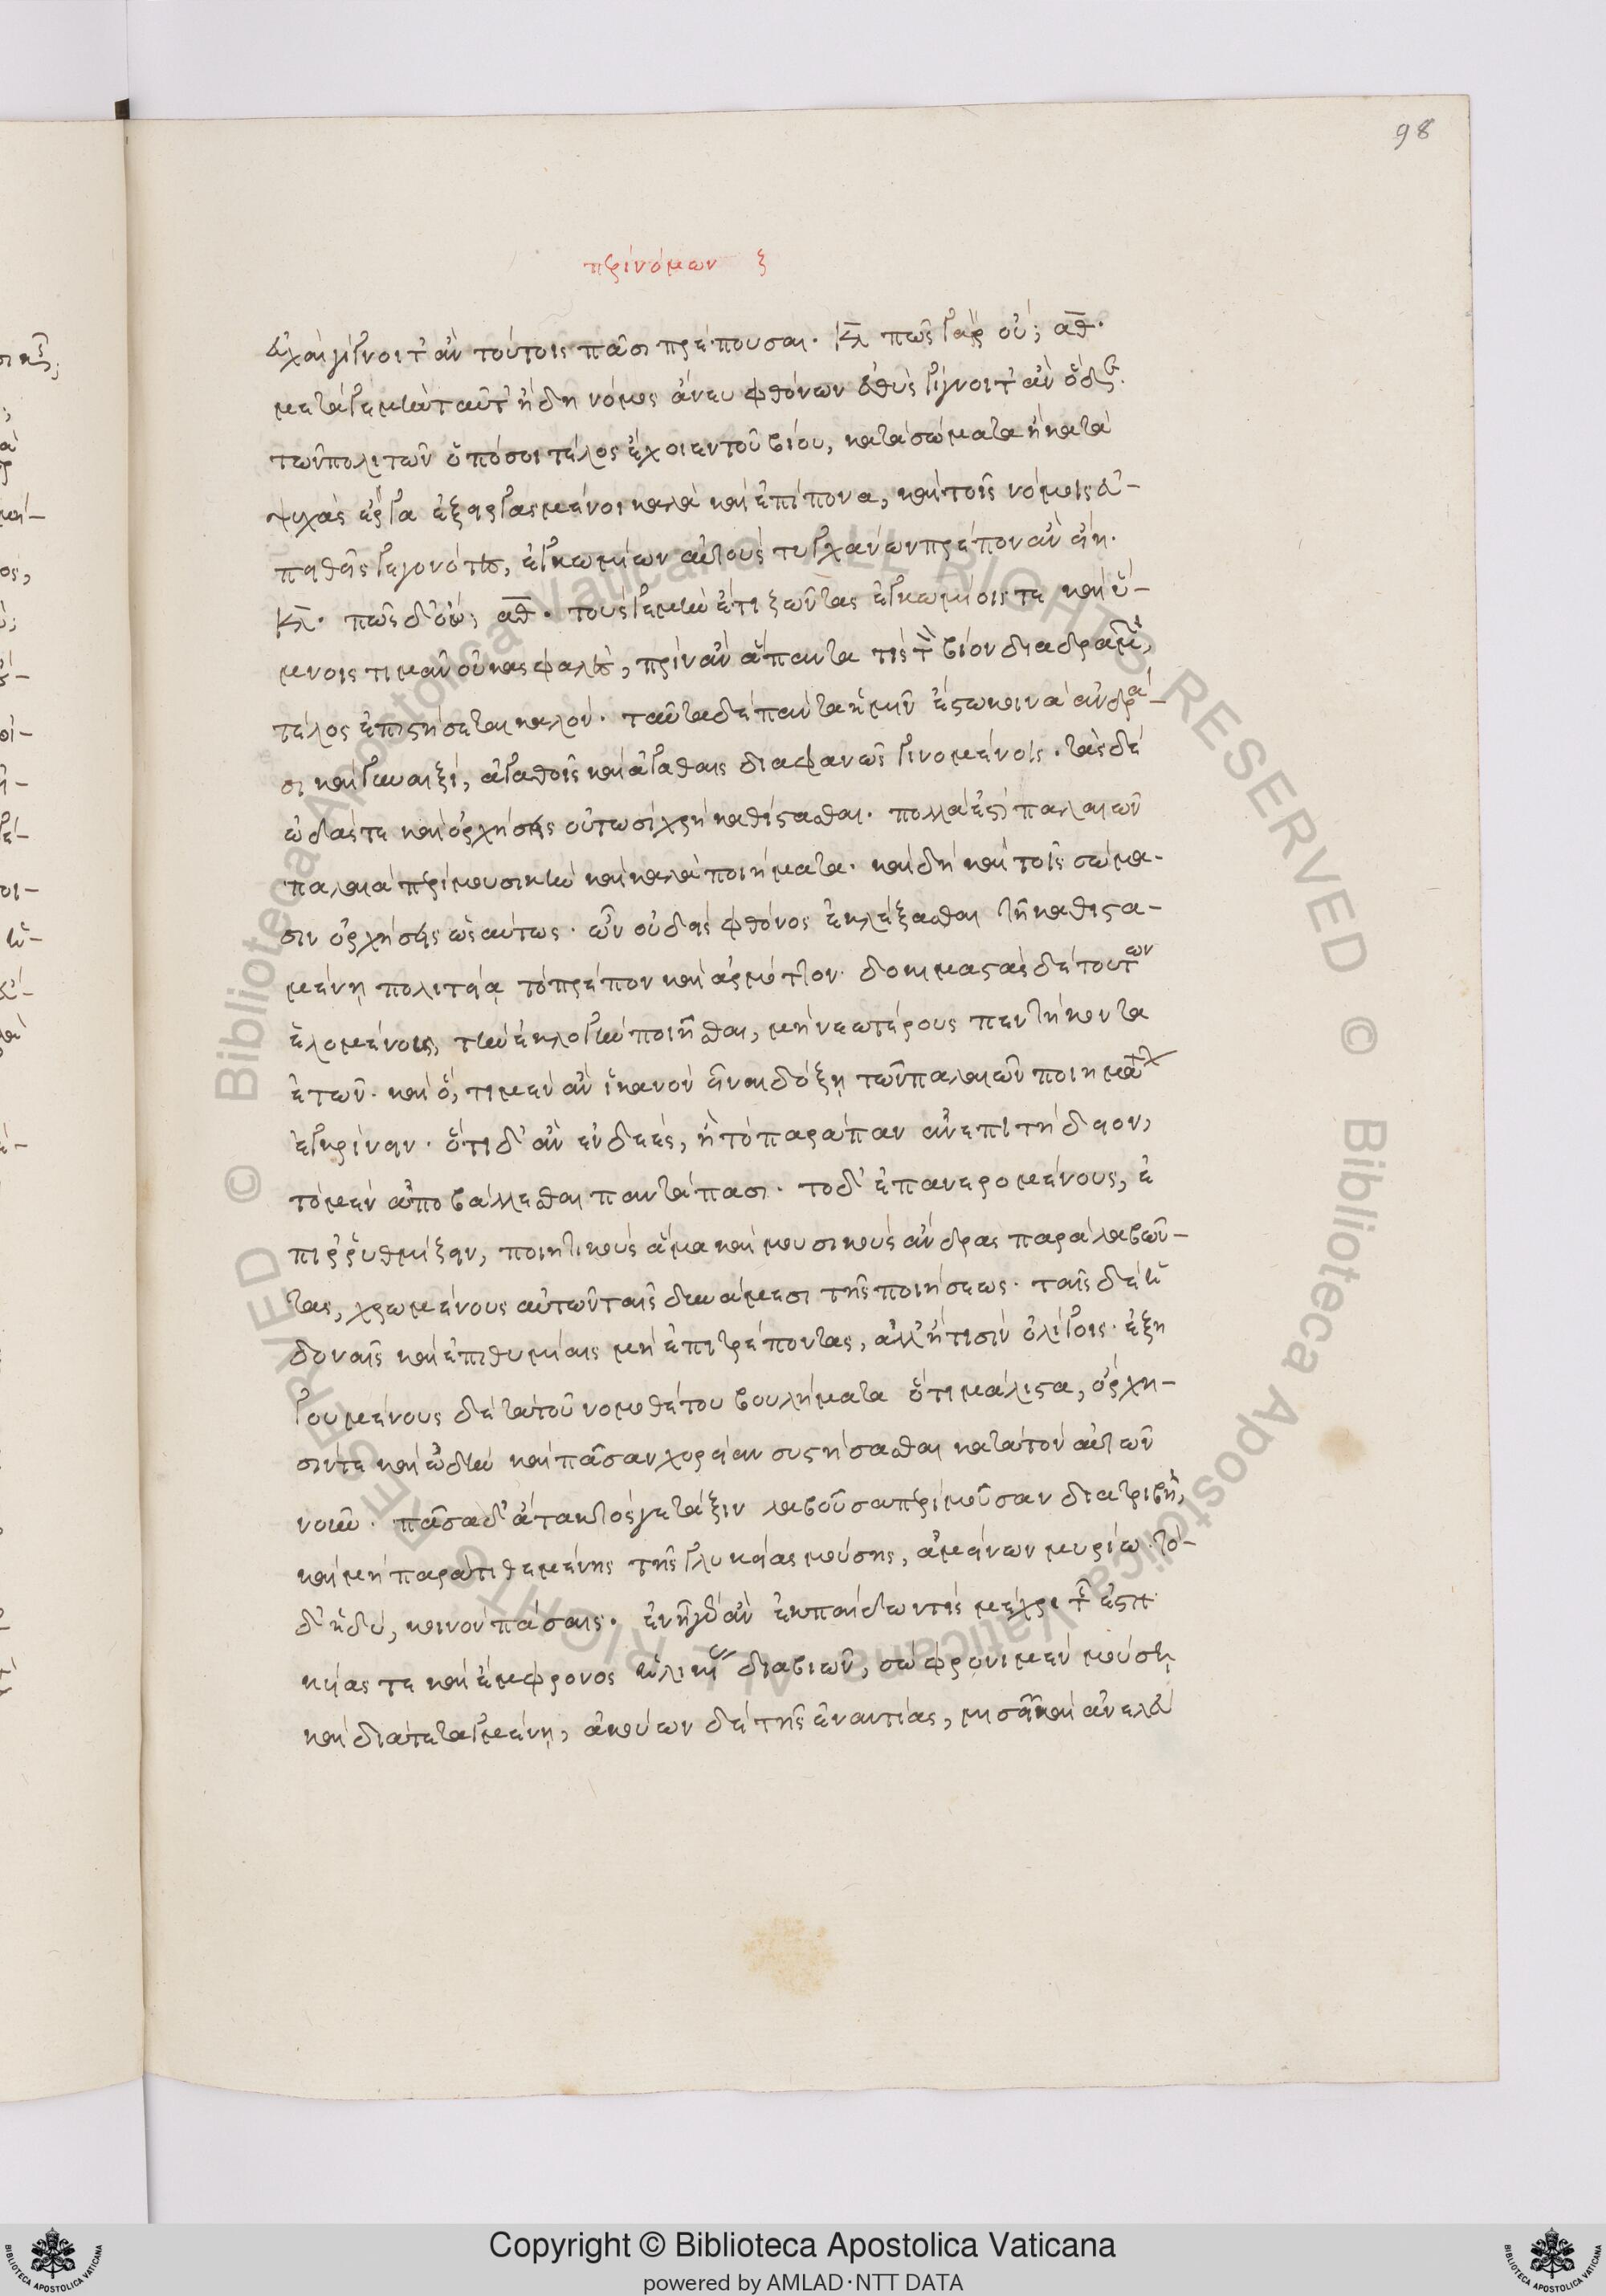 98
περὶ νόμων ζ
εὐχαὶ γίγνοιντ' ἂν τούτοις πᾶσι πρέπουσαι. κλ πῶς γὰρ οὔ; αθ.
μετά γε μὴν ταῦτ' ἤδη νόμος ἄνευ φθόνων εὐθὺς γίγνοιτ' ἂν ὅδε.
τῶν πολιτῶν ὁπόσοι τέλος ἔχοιεν τοῦ βίου, κατὰ σώματα ἢ κατὰ
ψυχὰς ἔργα ἐξειργασμένοι καλὰ καὶ ἐπίπονα, καὶ τοῖς νόμοις εὐ-
πειθεῖς γεγονότες, ἐγκωμίων αὐτοὺς τυγχάνειν πρέπον ἂν εἴη.
κλ. πῶς δ' οὔ; αθ. τούς γε μὴν ἔτι ζῶντας ἐγκωμίοις τε καὶ ὕ-
μνοις τιμᾶν οὐκ ἀσφαλές, πρὶν ἂν ἅπαντά τις τὸν βίον διαδραμὼν
τέλος ἐπιστήσεται καλόν. ταῦτα δὲ πάντα ἡμῖν ἔστω κοινὰ ἀνδρά-
σι καὶ γυναιξί, ἀγαθοῖς καὶ ἀγαθαῖς διαφανῶς γινομένοις. τὰς δὲ
ᾠδάς τε καὶ ὀρχήσεις οὑτωσὶ χρὴ καθίστασθαι. πολλά ἐστι παλαιῶν
παλαιὰ περὶ μουσικὴν καὶ καλὰ ποιήματα. καὶ δὴ καὶ τοῖς σώμα-
σιν ὀρχήσεις ὡσαύτως. ὧν οὐδεὶς φθόνος ἐκλέξασθαι τῇ καθιστα-
μένῃ πολιτείᾳ τὸ πρέπον καὶ ἁρμόττον. δοκιμαστὰς δὲ τούτων
ἑλομένους, τὴν ἐκλογὴν ποιεῖσθαι, μὴ νεωτέρους πεντήκοντα
ἐτῶν. καὶ ὅ, τι μὲν ἂν ἱκανὸν εἶναι δόξῃ τῶν παλαιῶν ποιημάτων
ἐγκρίνειν. ὅ τι δ' ἂν ἐνδεές, ἢ τὸ παράπαν ἀνεπιτήδειον,
τὸ μὲν ἀποβάλλεσθαι παντάπασι. τὸ δ' ἐπανερομένους, ἐ
πιρρυθμίζειν, ποιητικοὺς ἅμα καὶ μουσικοὺς ἄνδρας παραλαβόν-
τας, χρωμένους αὐτῶν ταῖς δυνάμεσι τῆς ποιήσεως. ταῖς δὲ ἡ
δοναῖς καὶ ἐπιθυμίαις μὴ ἐπιτρέποντας, ἀλλ' ἤ τισιν ὀλίγοις. ἐξη
γουμένους δὲ τὰ τοῦ νομοθέτου βουλήματα ὅτι μάλιστα, ὄρχη-
σίν τε καὶ ᾠδὴν καὶ πᾶσαν χορείαν συστήσασθαι κατὰ τὸν αὐτῶν
νοῦν. πᾶσα δ' ἄτακτός γε τάξιν λαβοῦσα περὶ μοῦσαν διατριβὴ,
καὶ μὴ παρατιθεμένης τῆς γλυκείας μούσης, ἀμείνων μυρίω. τό-
δ' ἡδύ, κοινὸν πάσαις. ἐν ᾗ γὰρ ἂν ἐκ παίδων τις μέχρι τῆς ἑστη
κυίας τε καὶ ἔμφρονος ἡλικίας διαβιῶν, σώφρονι μὲν μούσῃ
καὶ διατεταγμένῃ, ἀκούων δὲ τῆς ἐναντίας, μισεῖ καὶ ἀνελεύ
Copyright © Biblioteca Apostolica Vaticana
powered by AMLAD·NTT DATA